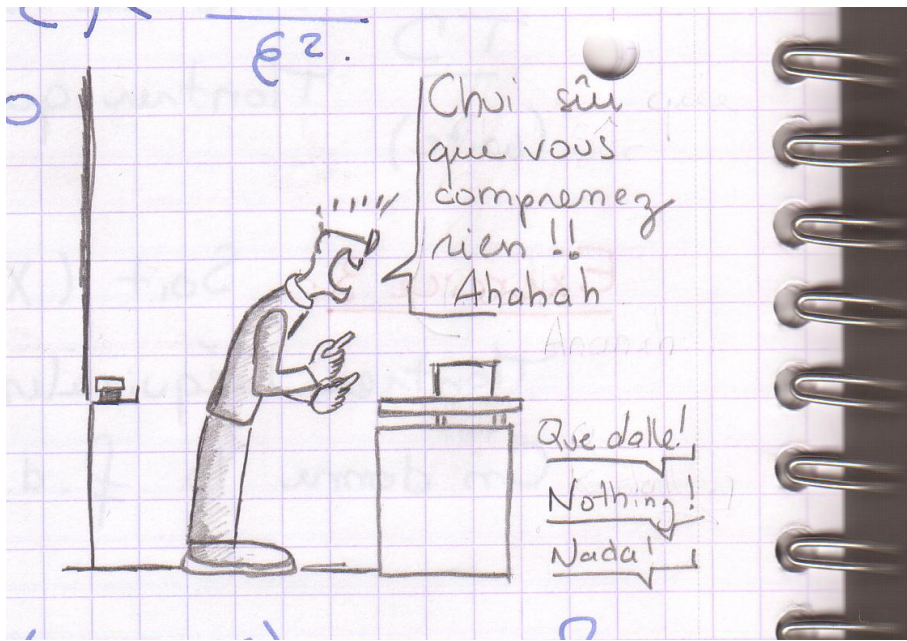 Chui sûr
que vous
comprenez
rien !!
Ahahah
Que dalle!
Nothing!
Nada!